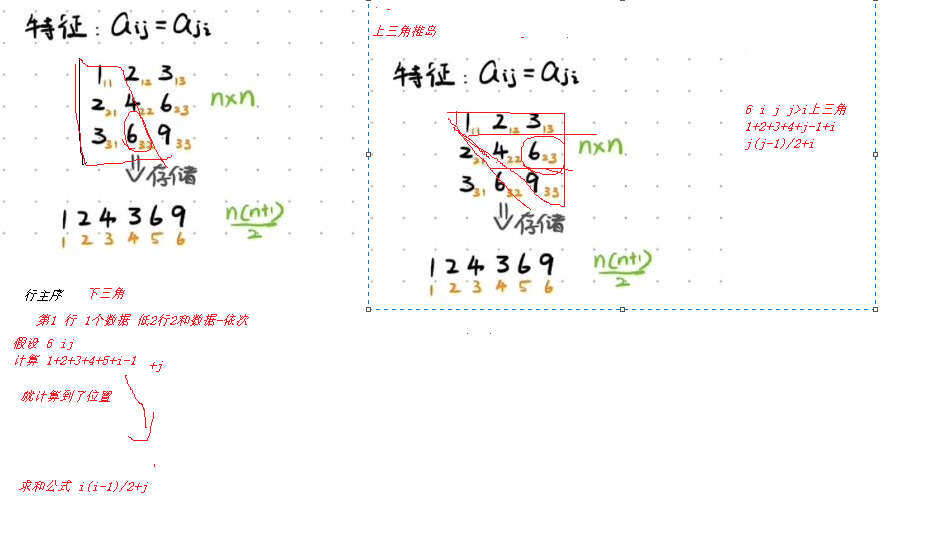 特征: aij=aji
1 11 2 12 3 13
2 21 4 22 6 23
n×n
3 31 6 32 9 33
存储
1 2 4 3 6 9
n(n+1)/2
1 2 3 4 5 6
行主序 下三角
第1 行 1个数据 低2行2和数据-依次
假设 6 ij
计算 1+2+3+4+5+i-1 +j
就计算到了位置
求和公式 i(i-1)/2+j
上三角推岛
特征: aij=aji
1 11 2 12 3 13
2 21 4 22 6 23
n×n
3 31 6 32 9 33
存储
1 2 4 3 6 9
n(n+1)/2
1 2 3 4 5 6
6 i j j>i上三角
1+2+3+4+j-1+i
j(j-1)/2+i